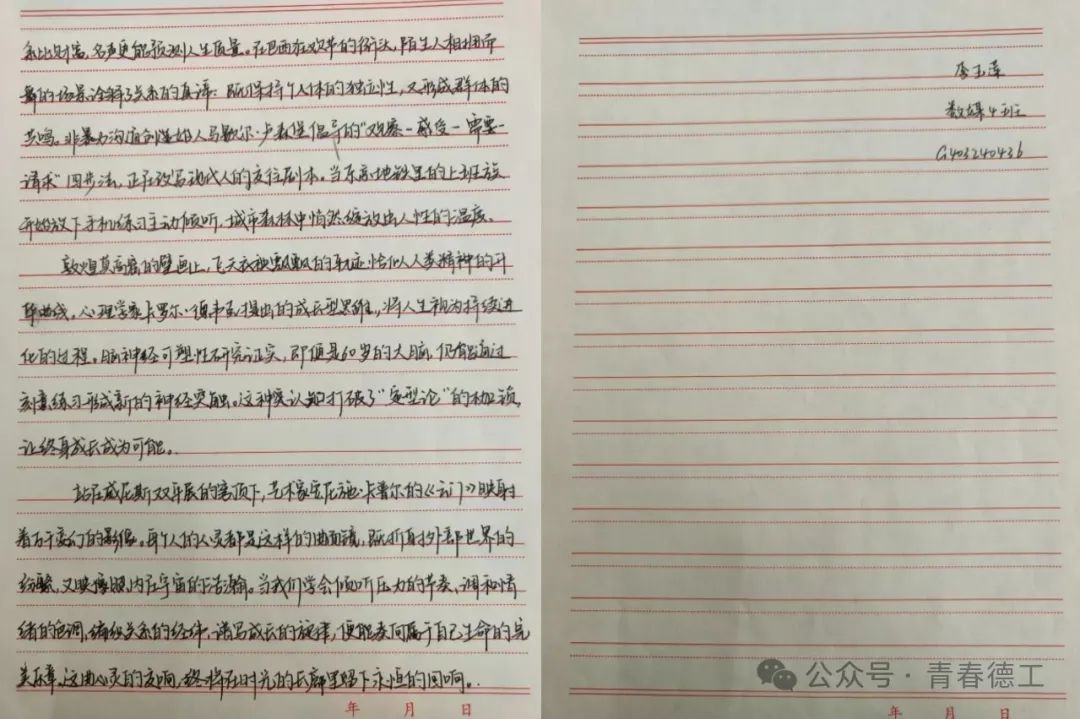 系比财富、名声更能预测人生质量。在巴西狂欢节的街头,陌生人相拥而
舞的场景诠释了关系的真谛:既保持个体的独立性,又形成群体的
共鸣。非暴力沟通创始人马歇尔·卢森堡倡导的"观察-感受-需要-
请求"四步法,正在改写现代人的交往剧本。当东京地铁里的上班族
开始放下手机练习主动倾听,城市森林中悄然绽放出人性的温度。
敦煌莫高窟的壁画上,飞天衣袂飘飘的轨迹恰似人类精神的升
华曲线。心理学家卡罗尔·德韦克提出的成长型思维,将人生视为持续进
化的过程。脑神经可塑性研究证实,即便是60岁的大脑,仍有能通过
刻意练习形成新的神经突触。这种认知打破了"定型论"的枷锁,
让终身成长成为可能。
站在威尼斯双年展的穹顶下,艺术家安尼施·卡普尔的《云门》映射
着万千变幻的影像。每个人的心灵都是这样的曲面镜,既折射外部世界的
纷繁,又映照内在宇宙的浩瀚。当我们学会倾听压力的节奏,调和情
绪的色调,编织关系的经纬,谱写成长的旋律,便能奏响属于自己生命的完
美乐章。这曲心灵的交响,终将在时光的长廊里留下永恒的回响。
年 月 日
李玉莲
数媒4班
G403240436
年 月 日
公众号·青春德工